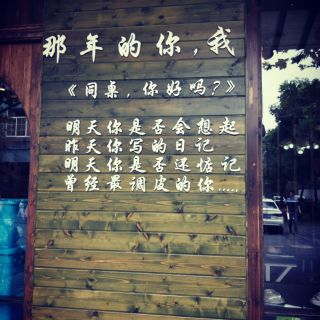 那年的你,我
《同桌,你好吗?》
明天你是否会想起
昨天你写的日记
明天你是否还惦记
曾经最调皮的你.....